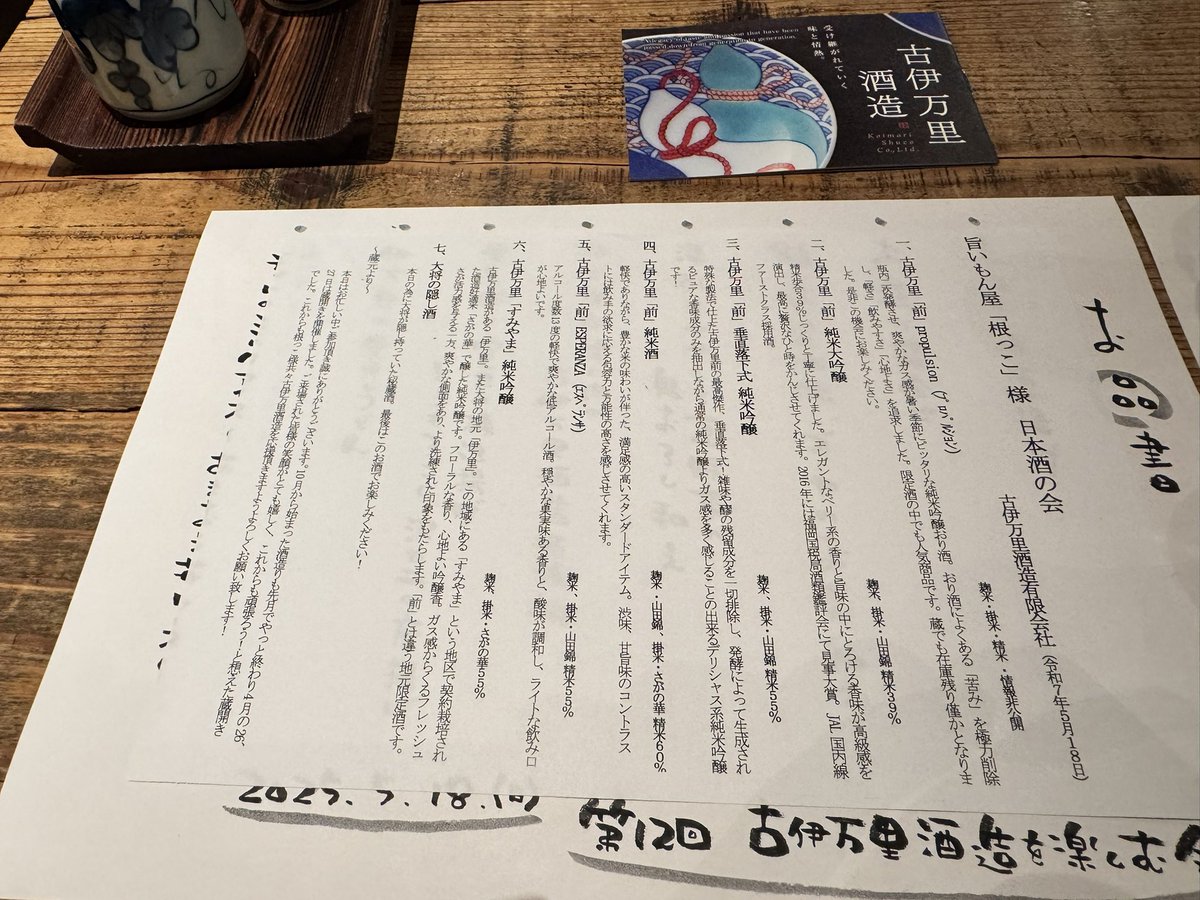 古伊万里
酒造
Koimari
Shuzo
Co.,Ltd.
受け継がれていく
味と情熱。
お品書
旨いもん屋「根っこ」様 日本酒の会
古伊万里酒造有限会社(令和7年5月18日)
一、古伊万里「前」propulsion(プロパルジョン)
麹米・掛米・精米・情報非公開
瓶内二次発酵させ、爽やかなガス感が暑い季節にピッタリな純米吟醸おり酒。おり酒によくある「苦み」を極力削除
し、「軽さ」「飲みやすさ」「心地よさ」を追求しました。限定酒の中でも人気商品です。蔵でも在庫残り僅かとなりま
した。是非この機会にお楽しみください。
二、古伊万里「前」純米大吟醸
麹米、掛米・山田錦 精米39%
精米歩合39%じっくりと丁寧に仕上げました。エレガントなベリー系の香りと旨味の中にとろける香味が高級感を
演出し、最高に贅沢なひと時をかんじさせてくれます。2016年には福岡国税局酒類鑑評会にて見事大賞。JAL国内線
ファーストクラス採用酒。
三、古伊万里「前」垂直落下式 純米吟醸
麹米、掛米・山田錦 精米55%
特殊な製法で仕上た古伊万里前の最高傑作、垂直落下式!雑味や醪の残留成分を一切排除し、発酵によって生成され
るピュアな香味成分のみを抽出しながら通常の純米吟醸よりガス感を多く感じることの出来るデリシャス系純米吟醸
です!
四、古伊万里「前」純米酒
麹米・山田錦、掛米・さがの華 精米60%
軽快でありながら、豊かな米の味わいが伴った、満足感の高いスタンダードアイテム。渋味、甘旨味のコントラス
トには飲み手の欲求に応える包容力と万能性の高さを感じさせてくれます。
五、古伊万里「前」ESPERANZA(エスペランサ)
麹米、掛米・山田錦 精米55%
アルコール度数13度の軽快で爽やかな低アルコール酒。穏やかな果実味ある香りと、酸味が調和し、ライトな飲み口
が心地よいです。
六、古伊万里「すみやま」純米吟醸
麹米、掛米・さがの華55%
古伊万里酒造がある「伊万里」。また大将の地元「伊万里」。この地域にある「すみやま」という地区で契約栽培され
た酒造好適米「さがの華」で醸した純米吟醸です。フローラルな香り、心地よい吟醸香。ガス感からくるフレッシュ
さが活力感を与える一方、爽やかな側面をあり、より洗練された印象をもたらします。「前」とは違う地元限定酒です。
七、大将の隠し酒
本日の為に大将が隠し持っていた秘蔵酒。最後はこのお酒でお楽しみください!
~蔵元より~
本日はお忙しい中ご参加頂き誠にありがとうございます。10月から始まった酒造りも先月でやっと終わり4月の26、
27日は蔵開きを開催しました。ご来場された皆様の笑顔がとても嬉しく、これからも頑張ろう!と想えた蔵開き
でした。これからも根っこ様共々古伊万里酒造を応援頂きますようよろしくお願い致します!
2025.5.18.(日)
第12回 古伊万里酒造を楽しむ